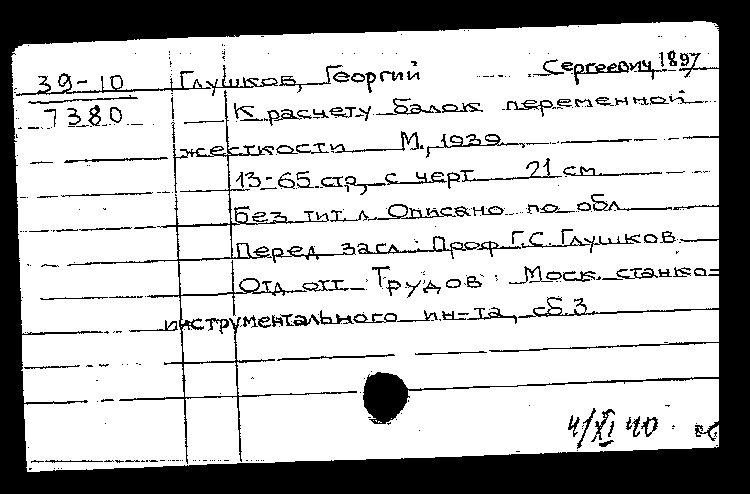 39-10 Глушков, Георгий Сергеевич, 1897
7380 К расчету балок переменной
жесткости М., 1939.
13-65 стр, с черт 21 см.
Без тит. л. Описано по обл
Перед загл.: Проф Г.С. Глушков.
Отд отт. Трудов Моск. станко=
инструментального ин-та, сб. 3.
4/XI 40